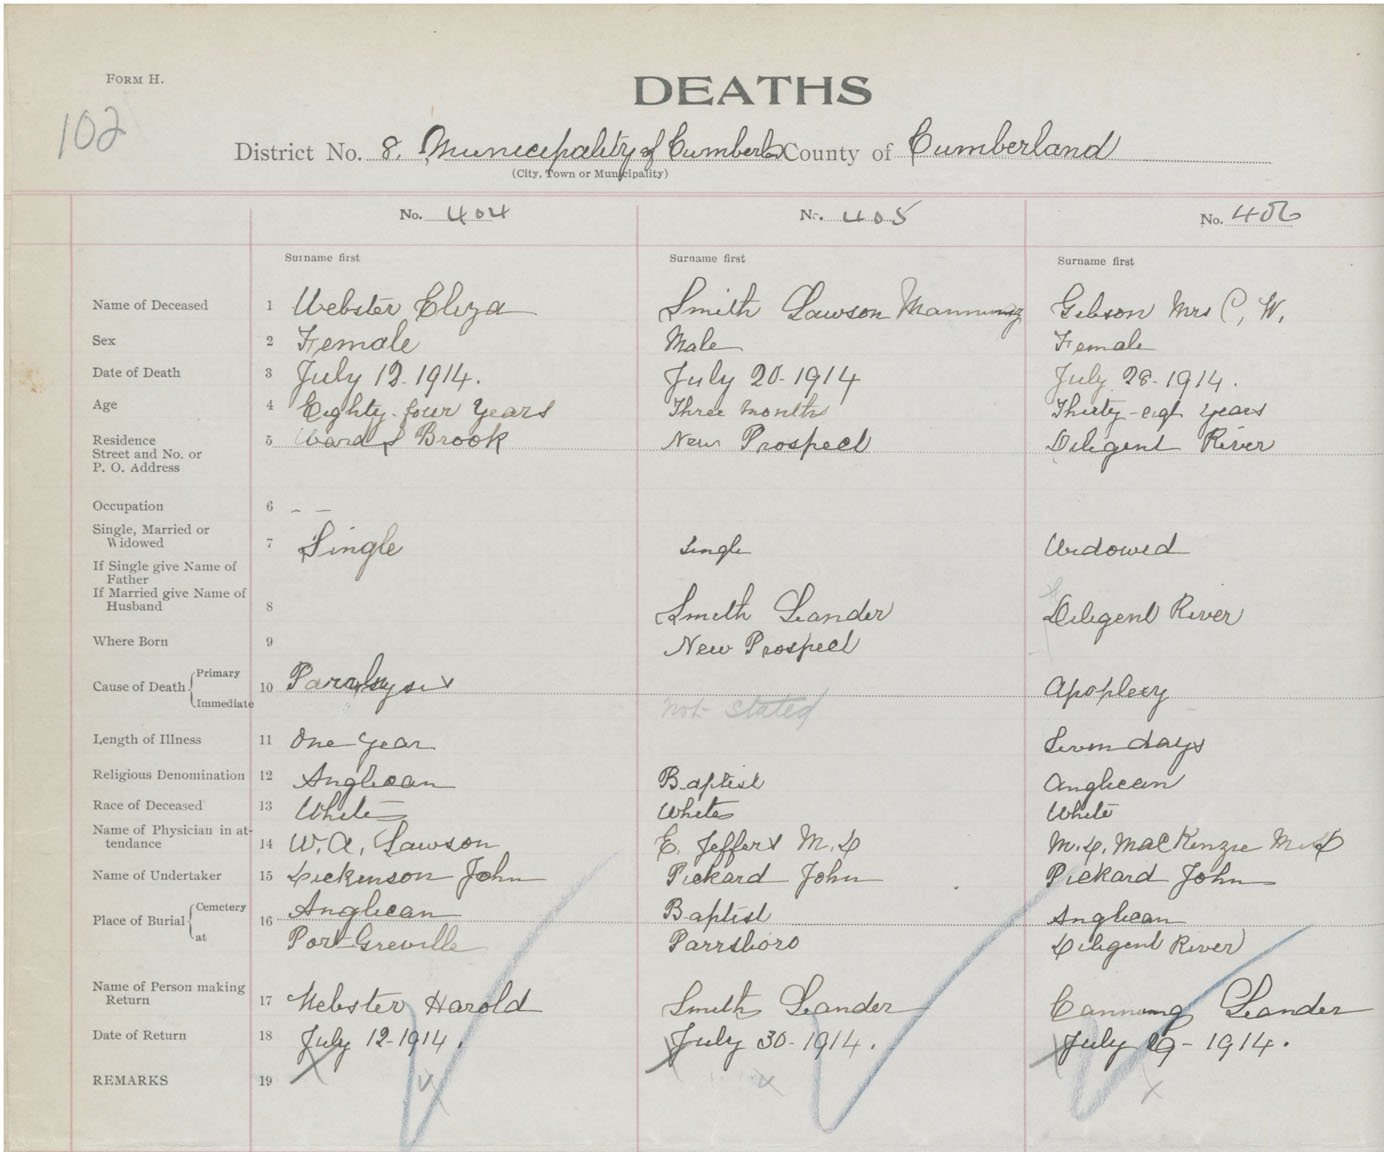 FORM H.
DEATHS
102
District No. 8. Municipality of Cumberland County of Cumberland
(City, Town or Municipality)
No. 404 No. 405 No. 406
Surname first Surname first Surname first
Name of Deceased 1 Webster Eliza Smith Lawson Manning Gibson Mrs C, W.
Sex 2 Female Male Female
Date of Death 3 July 12-1914. July 20-1914 July 28-1914.
Age 4 Eighty-four Years Three month Thirty-eigt years
Residence
Street and No. or
P. O. Address 5 Ward s Brook New Prospect Diligent River
Occupation 6 – –
Single, Married or
Widowed 7 Single Single Widowed
If Single give Name of
Father
If Married give Name of
Husband 8 Smith Leander Diligent River
Where Born 9 New Prospect
Cause of Death Primary
Immediate 10 Paralysis Apoplexy
not stated
Length of Illness 11 One year Seven days
Religious Denomination 12 Anglican Baptist Anglican
Race of Deceased 13 White White White
Name of Physician in at-
tendance 14 W. A. Lawson E. Jeffers M. D M. D. MacKenzie M D
Name of Undertaker 15 Dickenson John Pickard John Pickard John
Place of Burial Cemetery
at 16 Anglican Baptist Anglican
Port Greville Parrsboro Diligent River
Name of Person making
Return 17 Webster Harold Smith Leander Canning Leander
Date of Return 18 July 12-1914. July 30-1914. July 29-1914.
REMARKS 19 x x x